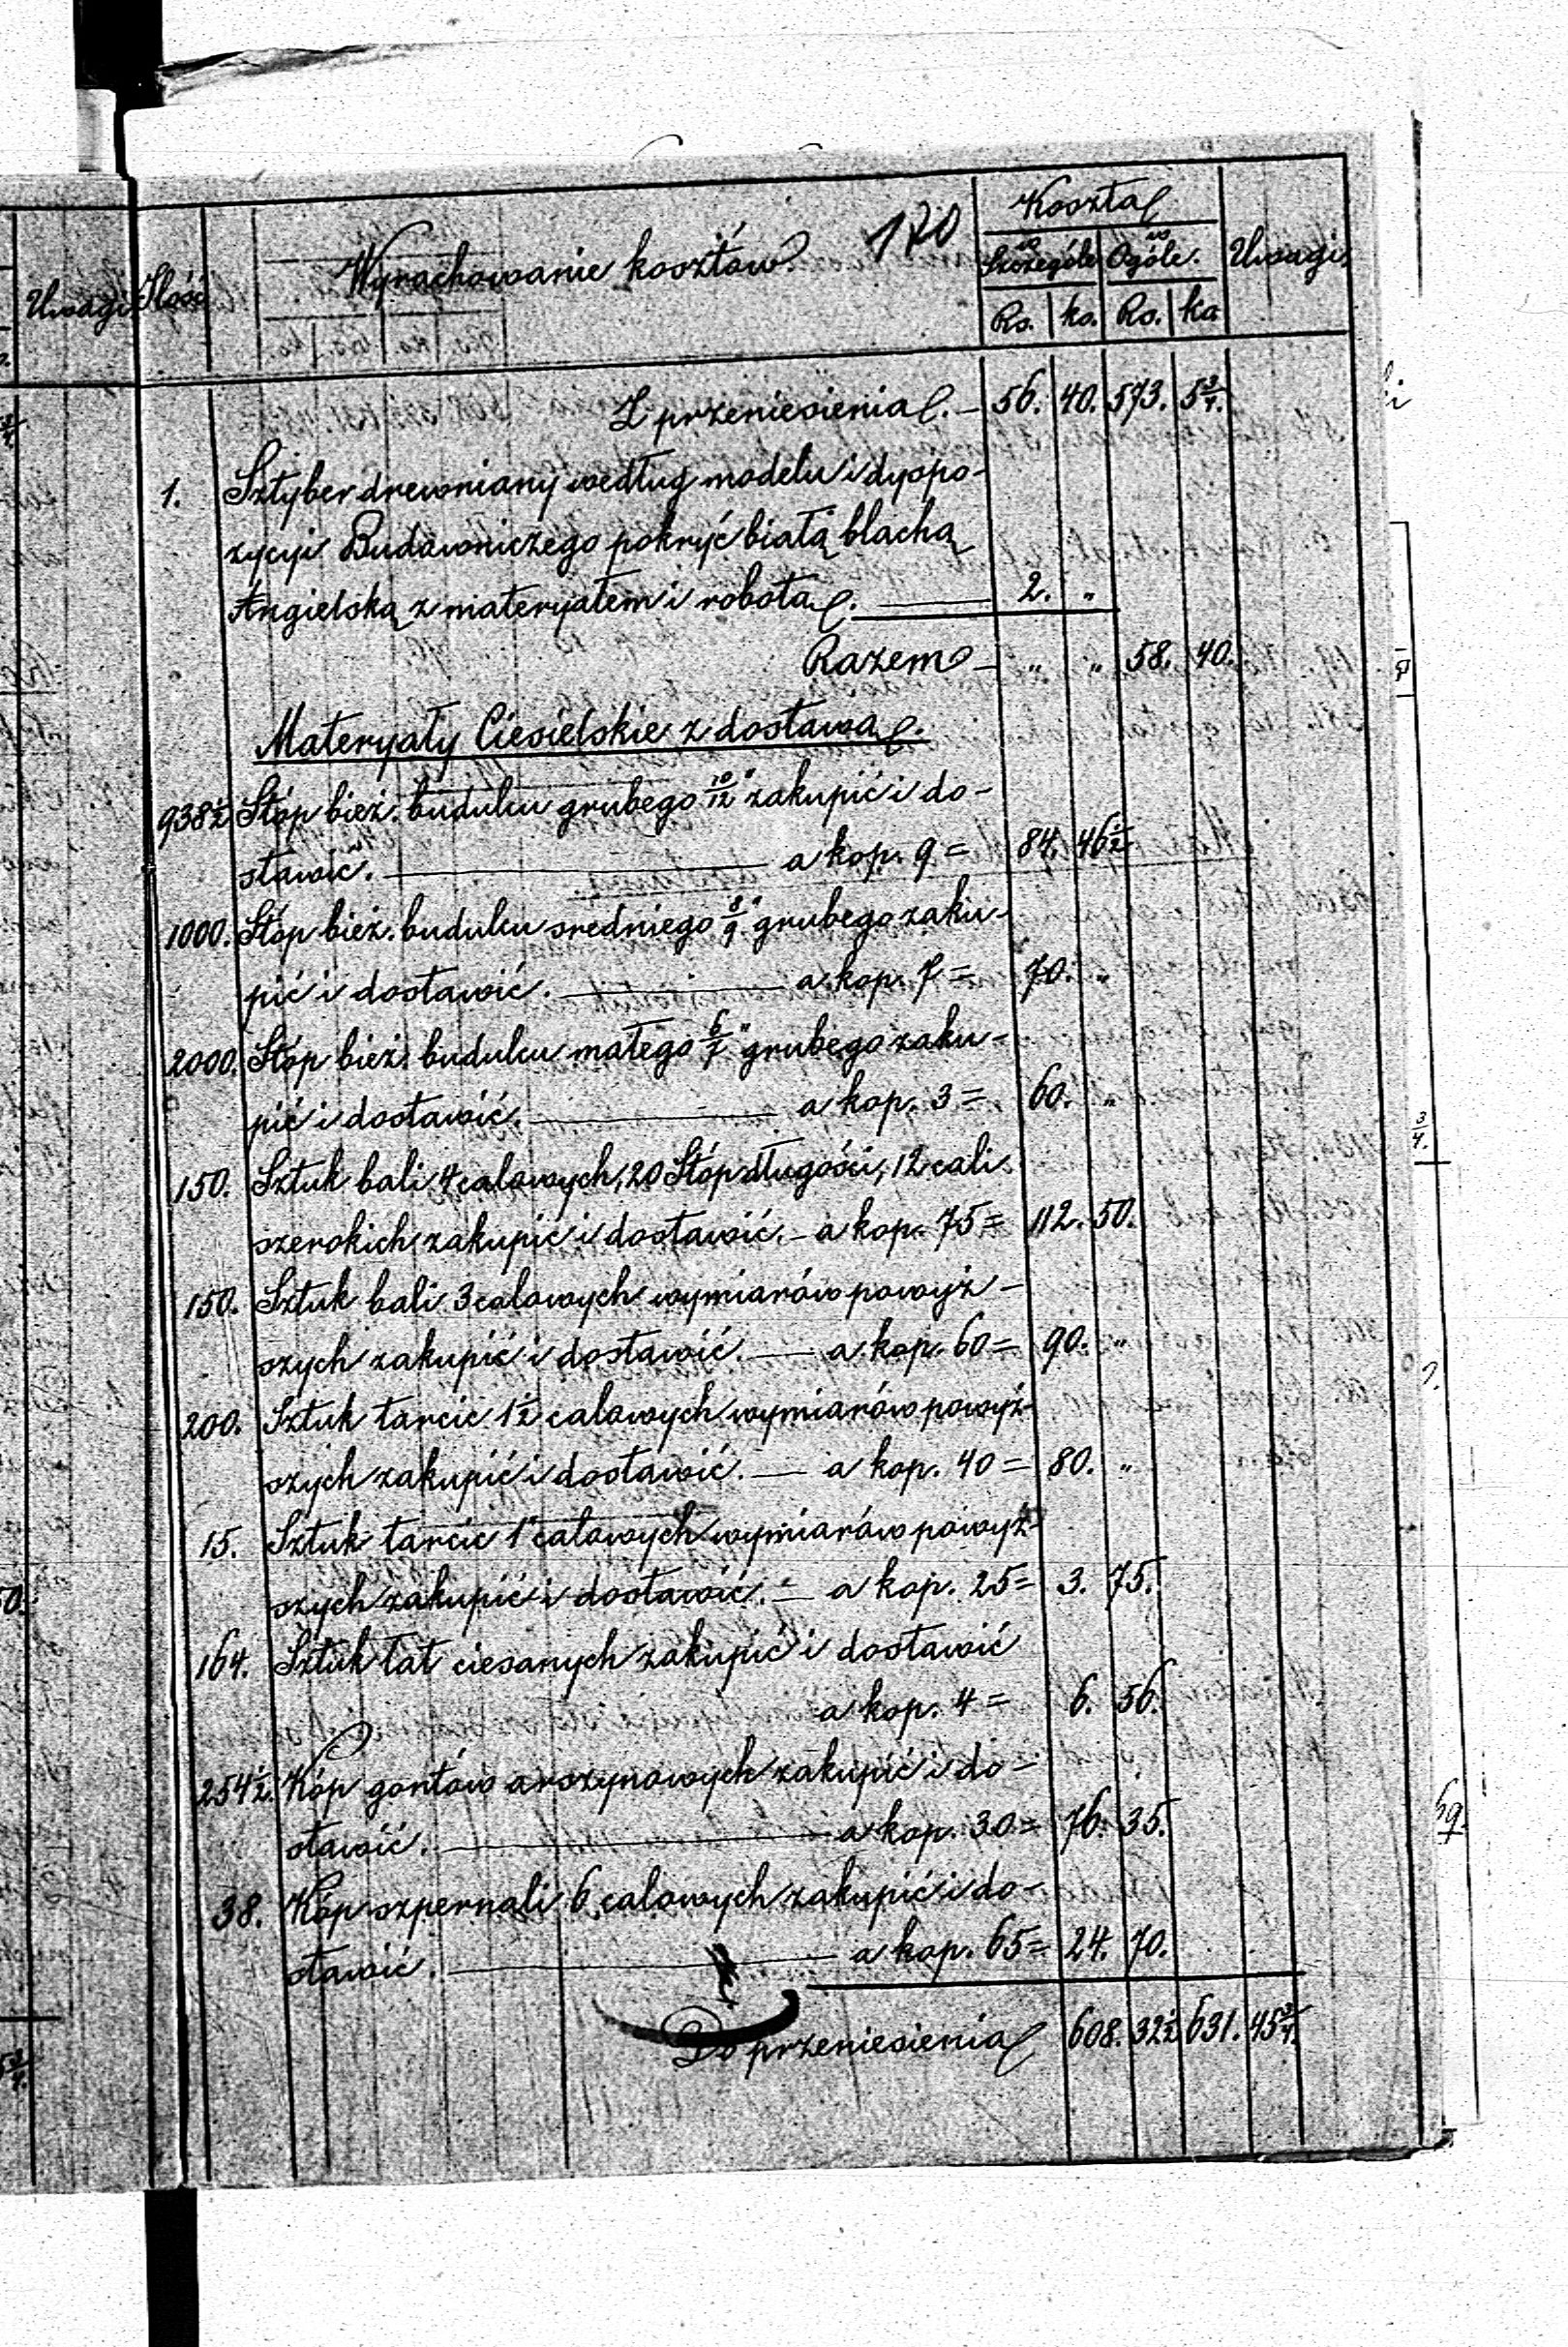 170
Uwagi Ilość Wyrachowanie kosztów. Koszta
w Szczególe w Ogóle. Uwagi
Rs. ko. Rs. ko
Z przeniesienia. — 56. 40. 573. 5 3/4.
1. Sztyber drewniany według modelu i dyspo-
zycyi Budowniczego pokryć białą blachą
Angielską z materyałem i robotą. — 2. "
Razem — " " 58. 40.
Materyały Ciesielskie z dostawą.
938 1/2 Stóp bież. budulcu grubego 10/12" zakupić i do-
stawić. — a kop. 9 = 84. 46 1/2
1000. Stóp bież. budulcu sredniego 8/9" grubego zaku-
pić i dostawić. — a kop. 7 = 70. "
2000. Stóp bież. budulcu małego 6/7" grubego zaku-
pić i dostawić. — a kop. 3 = 60. "
150. Sztuk bali 4 calowych, 20 Stóp długości, 12 cali
szerokich zakupić i dostawić. — a kop. 75 = 112. 50.
150. Sztuk bali 3 calowych wymiarów powyż-
szych zakupić i dostawić. — a kop. 60 = 90. "
200. Sztuk tarcic 1 1/2 calowych wymiarów powyż-
szych zakupić i dostawić. — a kop. 40 = 80. "
15. Sztuk tarcic 1" calowych wymiarów powyż-
szych zakupić i dostawić. — a kop. 25 = 3. 75.
164. Sztuk łat ciesanych zakupić i dostawić
a kop. 4 = 6. 56.
254 1/2. Kóp gontów arszynowych zakupić i do-
stawić. — a kop. 30 = 76. 35.
38. Kóp szpernali 6 calowych zakupić i do-
stawić. — a kop. 65 = 24. 70.
Do przeniesienia 608. 32 1/2 631. 45 3/4.